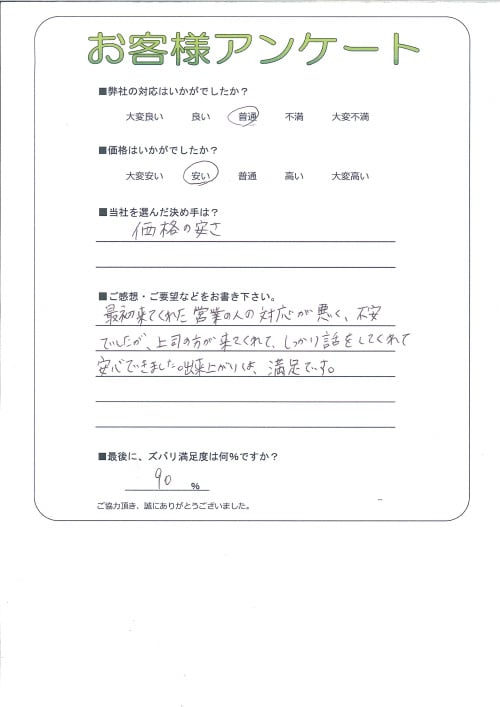 お客様アンケート
■弊社の対応はいかがでしたか？
大変良い 良い 普通 不満 大変不満
■価格はいかがでしたか？
大変安い 安い 普通 高い 大変高い
■当社を選んだ決め手は？
価格の安さ
■ご感想・ご要望などをお書き下さい。
最初来てくれた営業の人の対応が悪く、不安
でしたが、上司の方が来てくれて、しっかり話をしてくれて
安心できました。出来上がりは、満足です。
■最後に、ズバリ満足度は何%ですか？
90 %
ご協力頂き、誠にありがとうございました。